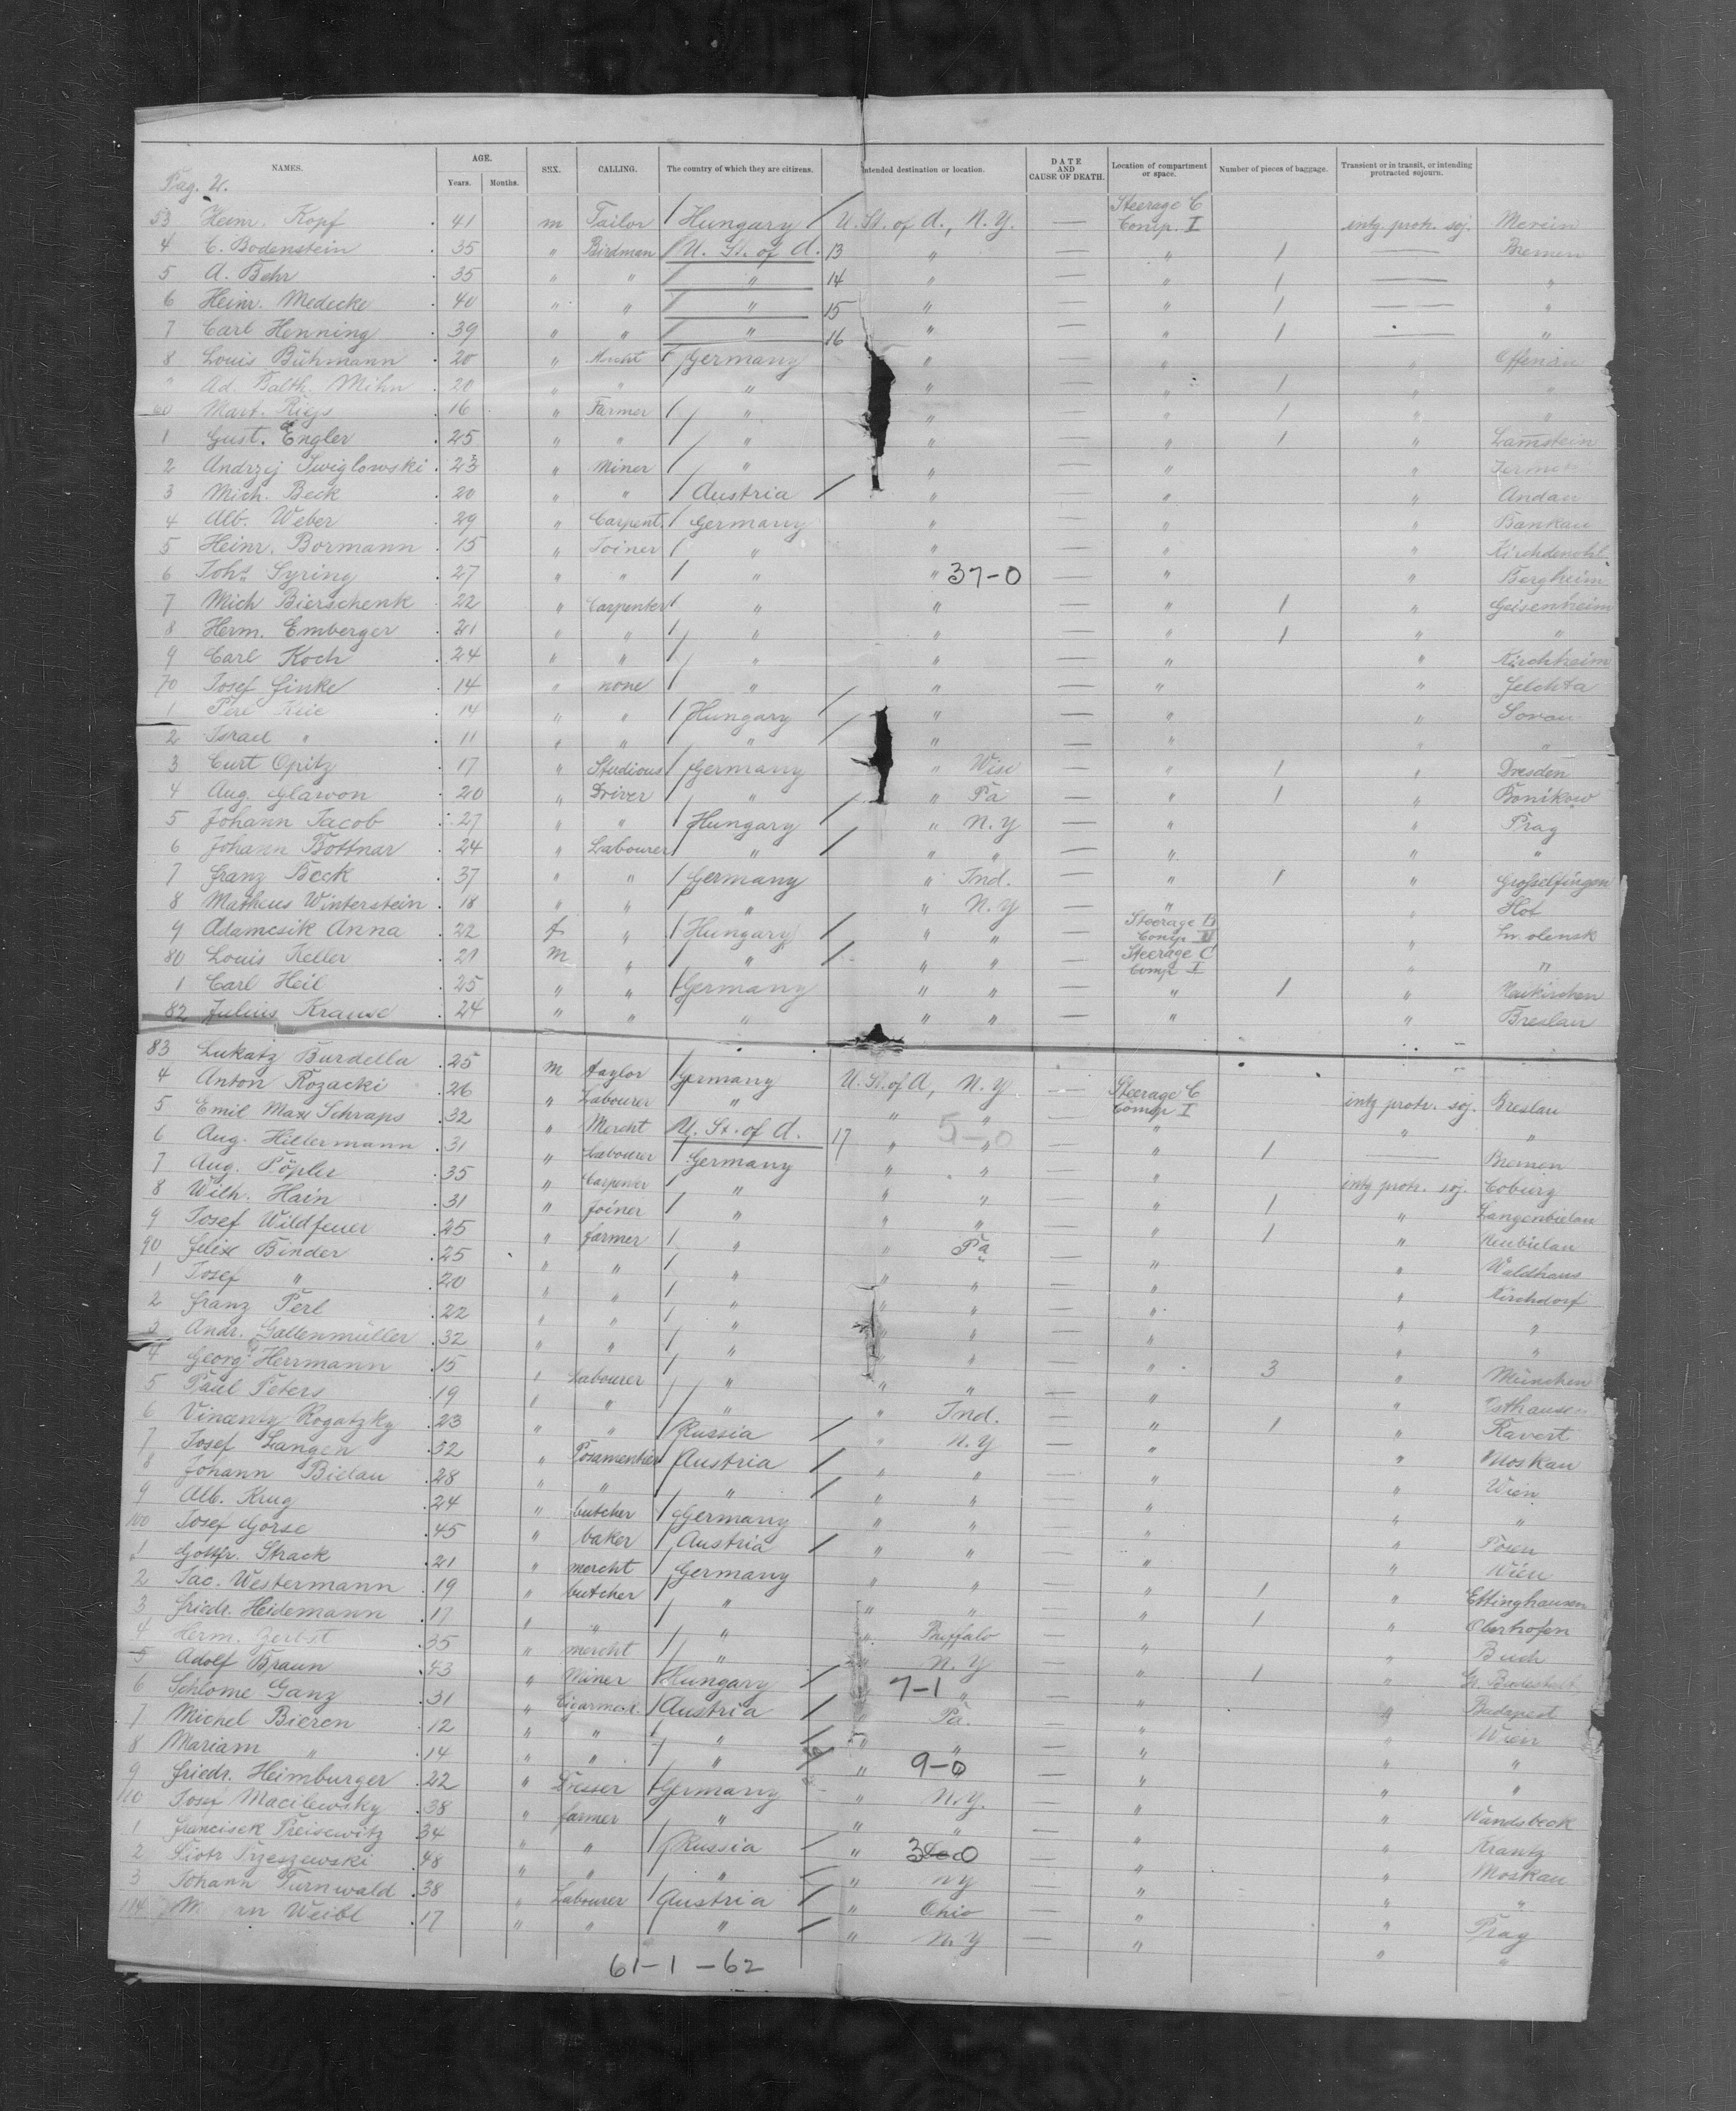 NAMES. AGE. Years. Months. SEX. CALLING. The country of which they are citizens. Intended destination or location. DATE AND CAUSE OF DEATH. Location of compartment or space. Number of pieces of baggage. Transient or in transit, or intending protracted sojourn.
Pag. 2.
53 Heinr. Kopf 41 m Tailor Hungary U. St. of A., N.Y. — Steerage C Comp. I intg protr. soj. Merein
4 C. Bodenstein 35 " Birdman U. St. of A. 13 " — " 1 — Bremen
5 A. Behr 35 " " " 14 " — " 1 — "
6 Heinr. Medecke 40 " " " 15 " — " 1 — "
7 Carl Henning 39 " " " 16 " — " 1 — "
8 Louis Bühmann 20 " Mercht Germany " — " "
" Ad. Balth. Mihn 20 " " " " — " 1 " "
60 Mart. 16 " Farmer " " — " 1 " "
1 Gust. Engler 25 " " " " — " 1 " Lamstein
2 Andrzej Swiglowski 23 " Miner " " — " "
3 Mich. Beck 20 " " Austria " — " " Andau
4 Alb. Weber 29 " Carpent. Germany " — " " Bankau
5 Heinr. Bormann 15 " Joiner " " — " "
6 Johs Syring 27 " " " " 37-0 — " " Bergheim
7 Mich Bierschenk 22 " Carpenter " " — " 1 " Geisenheim
8 Herm. Emberger 21 " " " " — " 1 " "
9 Carl Koch 24 " " " " — " " Kirchheim
70 Josef Finke 14 " none " " — " " Jelchta
1 14 " " Hungary " — " " Sorau
2 Israel " 11 " " " " — " " "
3 Curt Opitz 17 " Studious Germany " Wisc — " 1 " Dresden
4 Aug. Glawon 20 " Driver " " Pa — " 1 " Bonikow
5 Johann Jacob 27 " " Hungary " N.Y — " " Prag
6 Johann Bottnar 24 " Labourer " " " — " " "
7 Franz Beck 37 " " Germany " Ind. — " 1 " Grosselfingen
8 Matheus Winterstein 18 " " " " N.Y — " " Hof
9 Adamcsik Anna 22 f " Hungary " " — Steerage B Comp II "
80 Louis Keller 21 m " " " " — Steerage C Comp I " "
1 Carl Heil 25 " " Germany " " — " 1 " Neikirchen
82 Julius Krause 24 " " " " " — " " Breslau
83 Lukatz Burdella 25 m taylor Germany U. St. of A, N.Y — Steerage C Comp I intg protr. soj. Breslau
4 Anton Rozacki 26 " Labourer " " " — " " "
5 Emil Max Schraps 32 " Mercht U. St. of A. 17 " " 5-0 — " 1 — Bremen
6 Aug. Hillermann 31 " Labourer Germany " " — " intg protr. soj. Coburg
7 Aug. Pöpler 35 " Carpenter " " " — " 1 " Langenbielau
8 Wilh. Hain 31 " Joiner " " " — " 1 " Neubielau
9 Josef Wildfeuer 25 " farmer " " Pa — " " Waldhaus
90 Felix Binder 25 " " " " " — " " Kirchdorf
1 Josef " 20 " " " " " — " " "
2 Franz Perl 22 " " " " " — " " "
3 Andr. Gallenmüller 32 " " " " " — " 3 " München
4 Georg Herrmann 15 " Labourer " " " — "
5 Paul Peters 19 " " " " Ind. — " 1 " Ravert
6 Vincenty Rogatzky 23 " " Russia " N.Y — " " Moskau
7 Josef Langen 52 " Posamentier Austria " " — " " Wien
8 Johann Bielau 28 " " " " " — " " "
9 Alb. Krug 24 " butcher Germany " " — " " Posen
100 Josef Gorse 45 " baker Austria " " — " " Wien
1 Gottfr. Strack 21 " mercht Germany " " — " 1 " Ettinghausen
2 Jac. Westermann 19 " butcher " " " — " 1 " Oberhofen
3 Friedr. Heidemann 17 " " " " Buffalo — " " Buch
4 Herm. Zerbst 35 " mercht " " N.Y — " 1 "
5 Adolf Braun 43 " Miner Hungary " " 7-1 — " " Budapest
6 Schlome Ganz 31 " Cigarmak. Austria " Pa. — " " Wien
7 Michel Bieren 12 " " " " " — " " "
8 Mariam " 14 " " " " 9-0 — " " "
9 Friedr. Heimburger 22 " Dresser Germany " N.Y. — " " Wandsbeck
110 Josef Macilewsky 38 " farmer " " " — " " Krantz
1 Francisek Preisewitz 34 " " Russia " 3 0 — " " Moskau
2 Piotr Trzeszewski 48 " " " " NY — " " "
3 Johann Turnwald 38 " Labourer Austria " Ohio — " " Prag
114 Weibl 17 " " " " N.Y — " " "
61-1-62